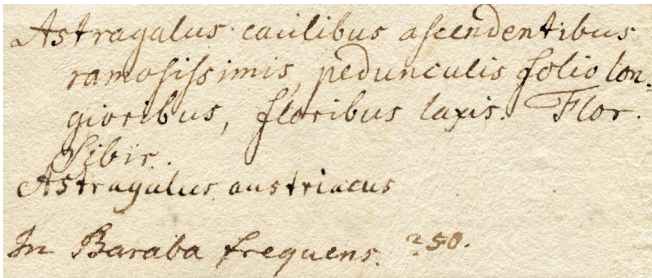 Astragalus caulibus ascendentibus
ramosissimis, pedunculis folio lon-
gioribus, floribus laxis. Flor.
Sibir.
Astragalus austriacus
In Baraba frequens. 250.